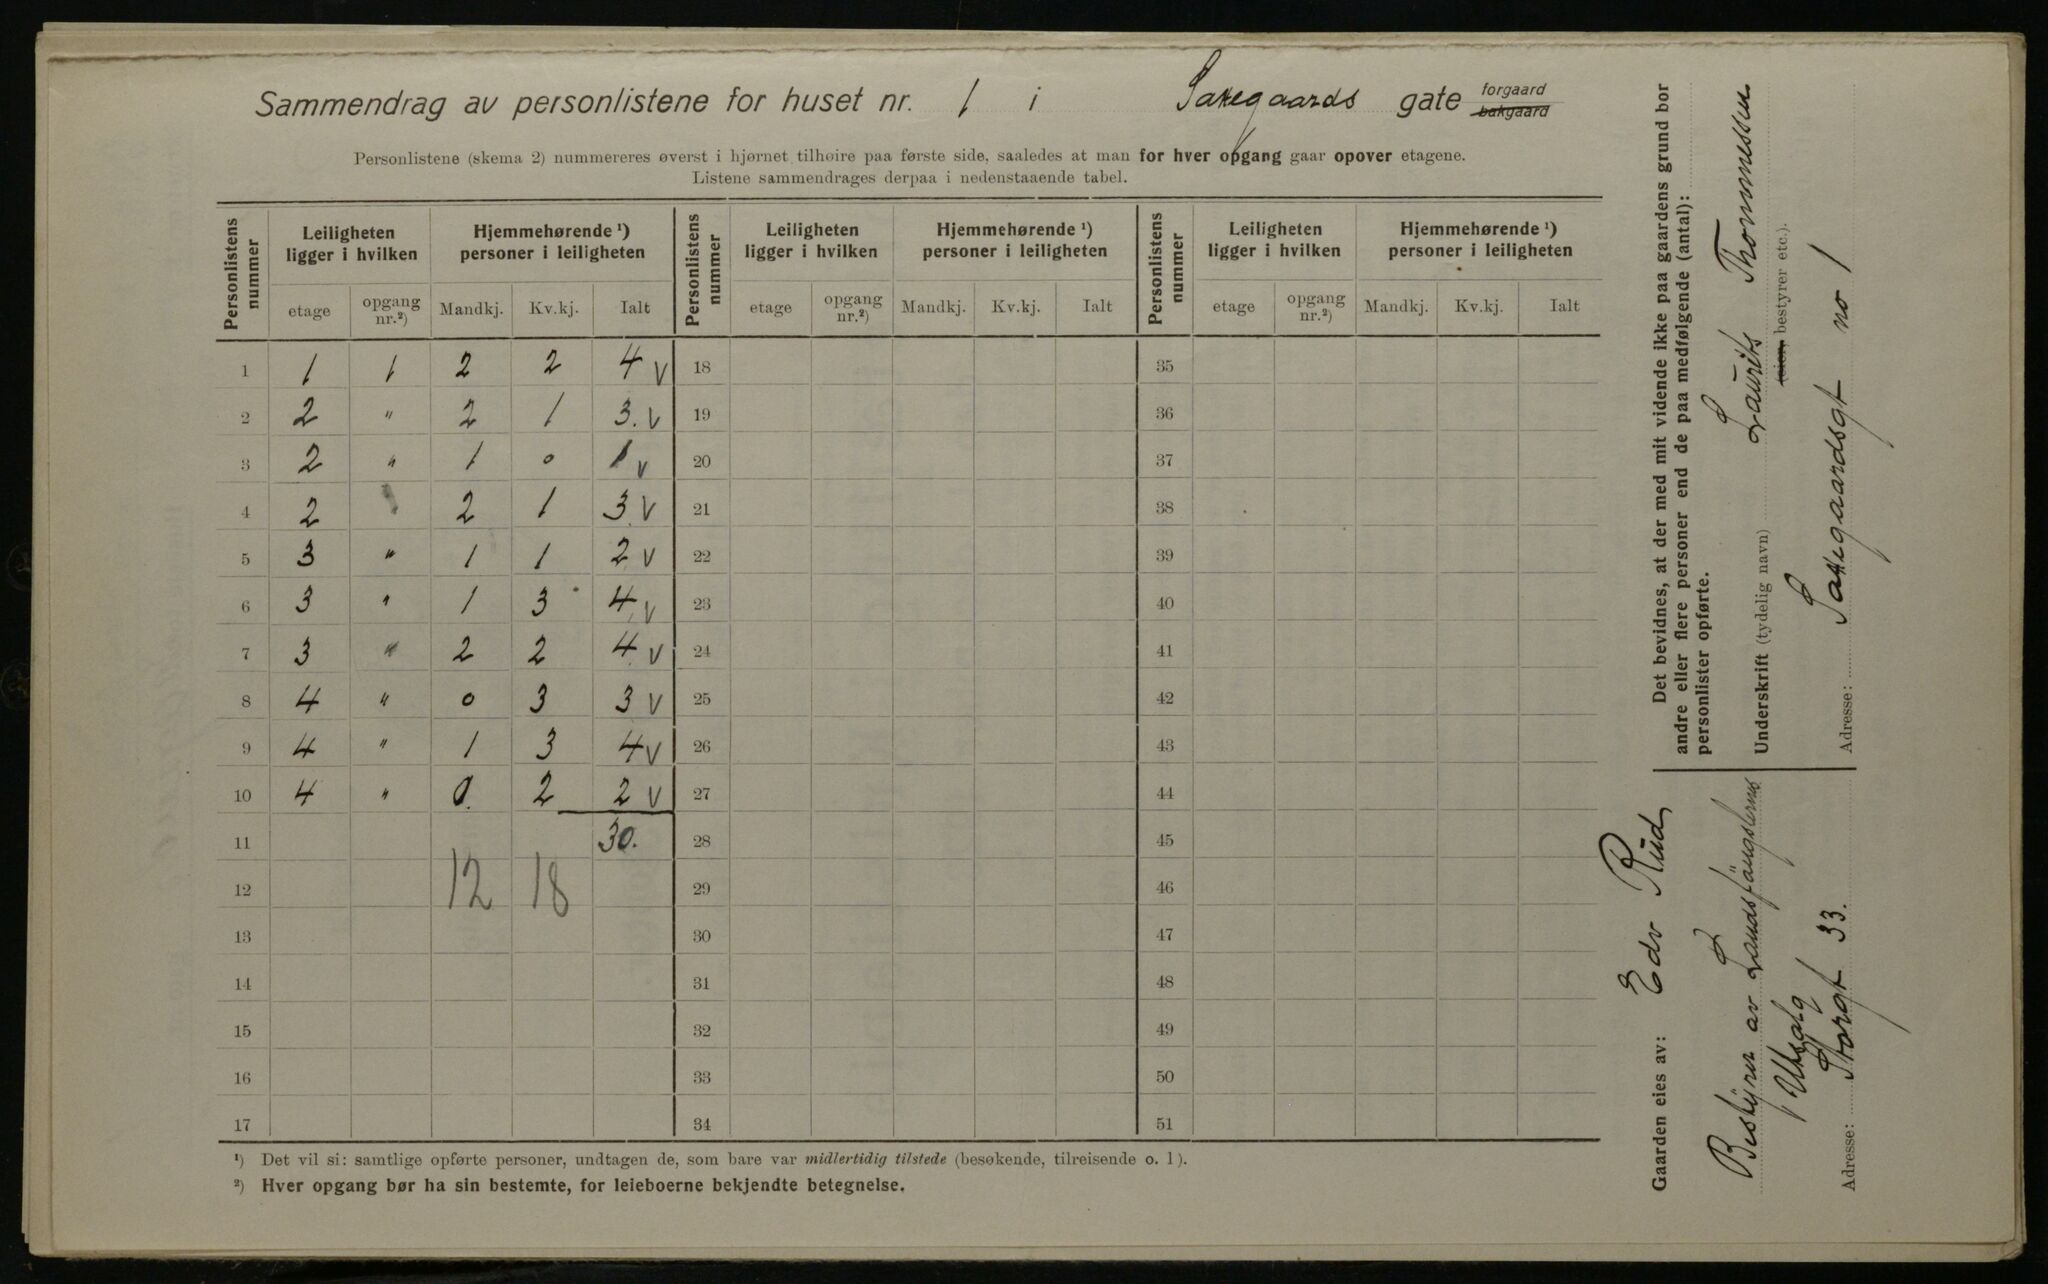 Sammendrag av personlistene for huset nr. 1 i Sannergaards gate forgaard bakgaard
Personlistene (skema 2) nummereres øverst i hjørnet tilhøire paa første side, saaledes at man for hver opgang gaar opover etagene.
Listene sammendrages derpaa i nedenstaaende tabel.
Personlistens nummer | Leiligheten ligger i hvilken | Hjemmehørende ¹) personer i leiligheten | Personlistens nummer | Leiligheten ligger i hvilken | Hjemmehørende ¹) personer i leiligheten | Personlistens nummer | Leiligheten ligger i hvilken | Hjemmehørende ¹) personer i leiligheten
etage | opgang nr.²) | Mandkj. | Kv.kj. | Ialt | etage | opgang nr.²) | Mandkj. | Kv.kj. | Ialt | etage | opgang nr.²) | Mandkj. | Kv.kj. | Ialt
1 | 1 | 1 | 2 | 2 | 4 V | 18 | 35
2 | 2 | " | 2 | 1 | 3. V | 19 | 36
3 | 2 | " | 1 | 0 | 1 V | 20 | 37
4 | 2 | " | 2 | 1 | 3 V | 21 | 38
5 | 3 | " | 1 | 1 | 2 V | 22 | 39
6 | 3 | " | 1 | 3 | 4 V | 23 | 40
7 | 3 | " | 2 | 2 | 4 V | 24 | 41
8 | 4 | " | 0 | 3 | 3 V | 25 | 42
9 | 4 | " | 1 | 3 | 4 V | 26 | 43
10 | 4 | " | 0. | 2 | 2 V | 27 | 44
11 | 30. | 28 | 45
12 | 12 | 18 | 29 | 46
13 | 30 | 47
14 | 31 | 48
15 | 32 | 49
16 | 33 | 50
17 | 34 | 51
¹) Det vil si: samtlige opførte personer, undtagen de, som bare var midlertidig tilstede (besøkende, tilreisende o. l).
²) Hver opgang bør ha sin bestemte, for leieboerne bekjendte betegnelse.
Det bevidnes, at der med mit vidende ikke paa gaardens grund bor
andre eller flere personer end de paa medfølgende (antal):
personlister opførte.
Underskrift (tydelig navn) Laurits Thommessen
(eier, bestyrer etc.).
Adresse: no 1
Gaarden eies av: Edv Rud
Bestyrer av Landsfængslernes
Utsalg
Adresse: Storgt 33.